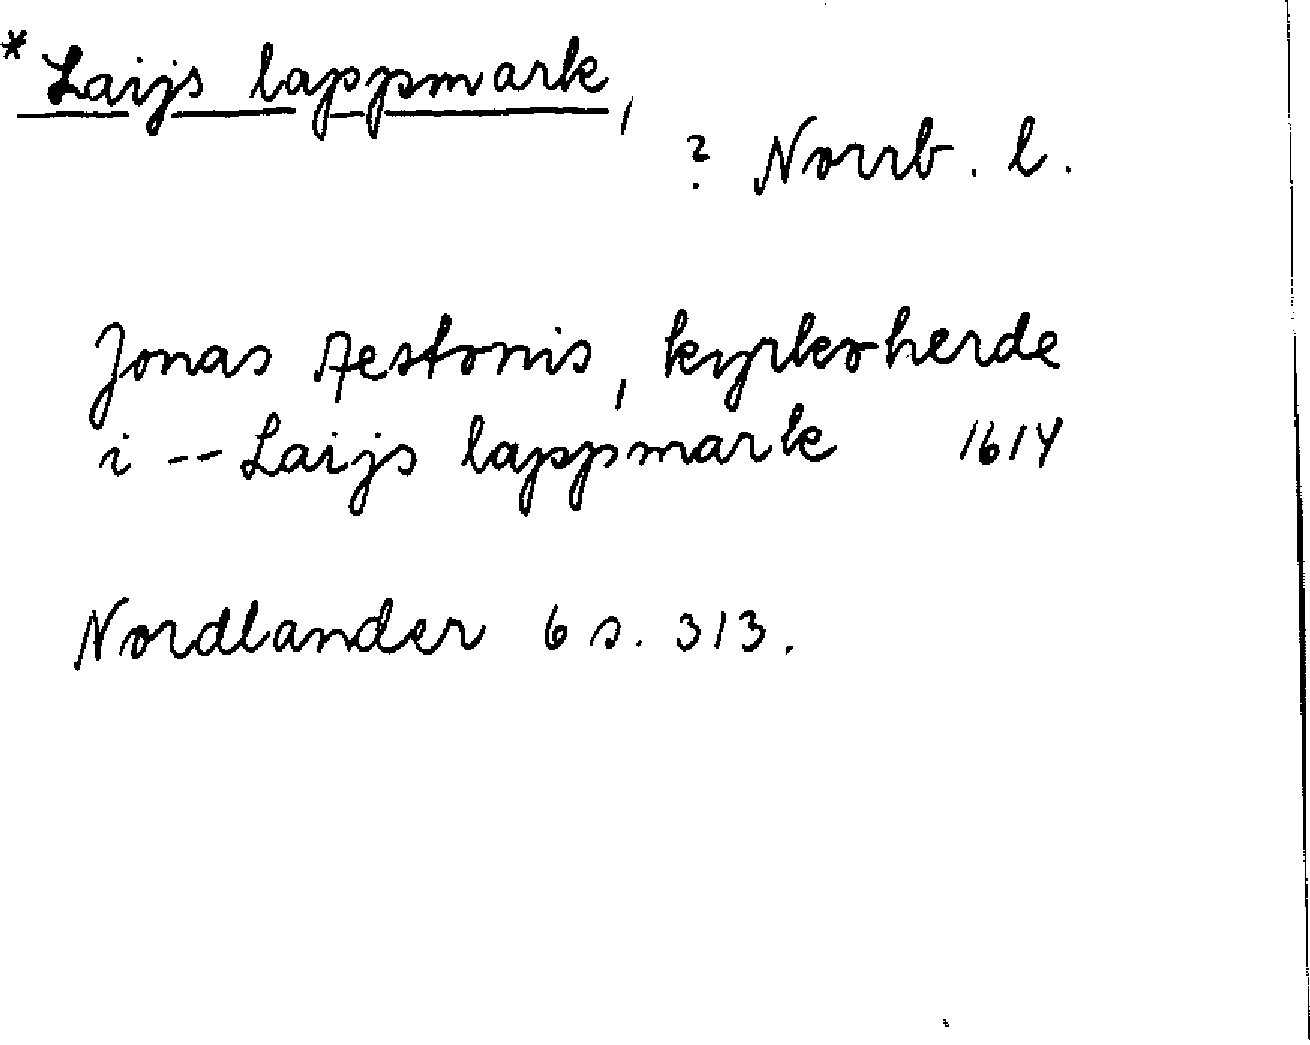 * Laijs lappmark,
? Norrb. l.
Jonas Aestonis, kyrkoherde
i -- Laijs lappmark 1614
Nordlander 6 s. 313.